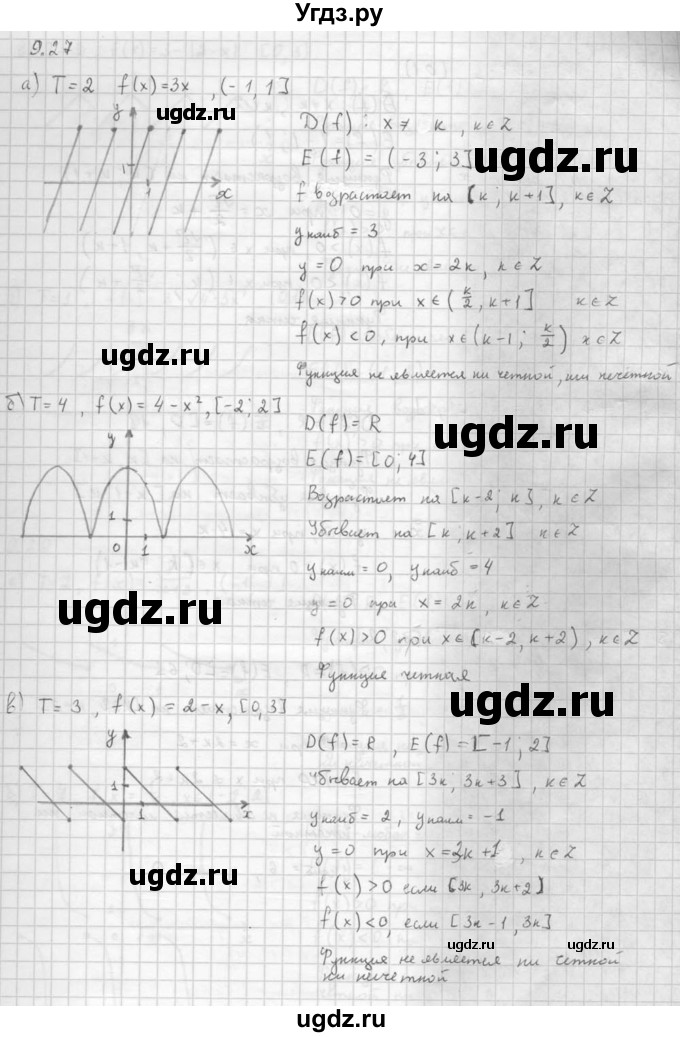 Угдз.ру
9.27
а) T = 2 f(x) = 3x , (-1, 1]
ugdz.ru
y
1
1
x
D(f) : x ≠ к , к ∈ Z
E(f) = (-3 ; 3]
ugdz.ru
f возрастает на [к ; к+1], к ∈ Z
y наиб = 3
y = 0 при x = 2к, к ∈ Z
f(x) > 0 при x ∈ (к/2, к+1] к ∈ Z
ugdz.ru
f(x) < 0, при x ∈ (к-1 ; к/2) x ∈ Z
ugdz.ru
Функция не является ни четной, ни нечетной
б) T = 4 , f(x) = 4 - x², [-2 ; 2]
y
1
0
1
x
D(f) = R
ugdz.ru
E(f) = [0; 4]
Возрастает на [к-2; к], к ∈ Z
Убывает на [к ; к+2] к ∈ Z
y наим = 0, y наиб = 4
ugdz.ru
y = 0 при x = 2к, к ∈ Z
f(x) > 0 при x ∈ (к-2, к+2), к ∈ Z
Функция четная
ugdz.ru
в) T = 3 , f(x) = 2 - x, [0, 3]
y
1
1
x
D(f) = R , E(f) = [-1 ; 2]
Убывает на [3к ; 3к+3] , к ∈ Z
y наиб = 2 , y наим = -1
y = 0 при x = 3к+1 , к ∈ Z
ugdz.ru
f(x) > 0 если [3к , 3к+2]
f(x) < 0, если [3к-1 , 3к]
ugdz.ru
ugdz.ru
Функция не является ни четной
ни нечетной
ugdz.ru